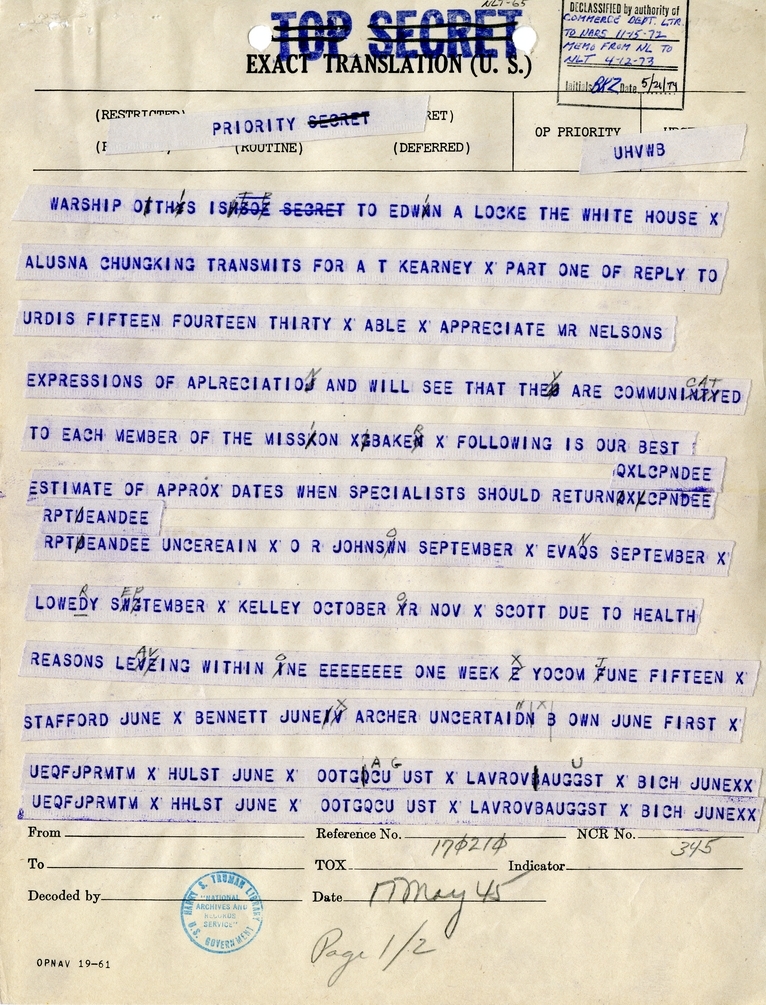 NLT-65
TOP SECRET
EXACT TRANSLATION (U. S.)
DECLASSIFIED by authority of
COMMERCE DEPT. LTR.
TO NARS 11-15-72
MEMO FROM NL TO
NLT 4-12-73
Initials Date 5/21/74
(RESTRICTED) PRIORITY SECRET RET) OP PRIORITY
(ROUTINE) (DEFERRED) UHVWB
WARSHIP OTTHIS IS SECRET TO EDWIN A LOCKE THE WHITE HOUSE X
ALUSNA CHUNGKING TRANSMITS FOR A T KEARNEY X PART ONE OF REPLY TO
URDIS FIFTEEN FOURTEEN THIRTY X ABLE X APPRECIATE MR NELSONS
EXPRESSIONS OF APLRECIATION AND WILL SEE THAT THEY ARE COMMUNICATED
TO EACH MEMBER OF THE MISSION X BAKER X FOLLOWING IS OUR BEST
QXLCPNDEE
ESTIMATE OF APPROX DATES WHEN SPECIALISTS SHOULD RETURNQXLCPNDEE
RPTJEANDEE
RPTJEANDEE UNCEREAIN X O R JOHNSON SEPTEMBER X EVANS SEPTEMBER X
LOWERDY SEPTEMBER X KELLEY OCTOBER OR NOV X SCOTT DUE TO HEALTH
REASONS LEAVING WITHIN ONE EEEEEEEE ONE WEEK X YOCOM JUNE FIFTEEN X
STAFFORD JUNE X BENNETT JUNE X ARCHER UNCERTAIN X B OWN JUNE FIRST X
A G U
UEQFJPRMTM X HULST JUNE X OOTGQCU UST X LAVROVBAUGGST X BICH JUNEXX
UEQFJPRMTM X HHLST JUNE X OOTGQCU UST X LAVROVBAUGGST X BICH JUNEXX
From Reference No. 170210 NCR No. 345
To TOX Indicator
Decoded by Date 17 May 45
HARRY S. TRUMAN LIBRARY
"NATIONAL
ARCHIVES AND
RECORDS
SERVICE"
U.S. GOVERNMENT
Page 1/2
OPNAV 19-61